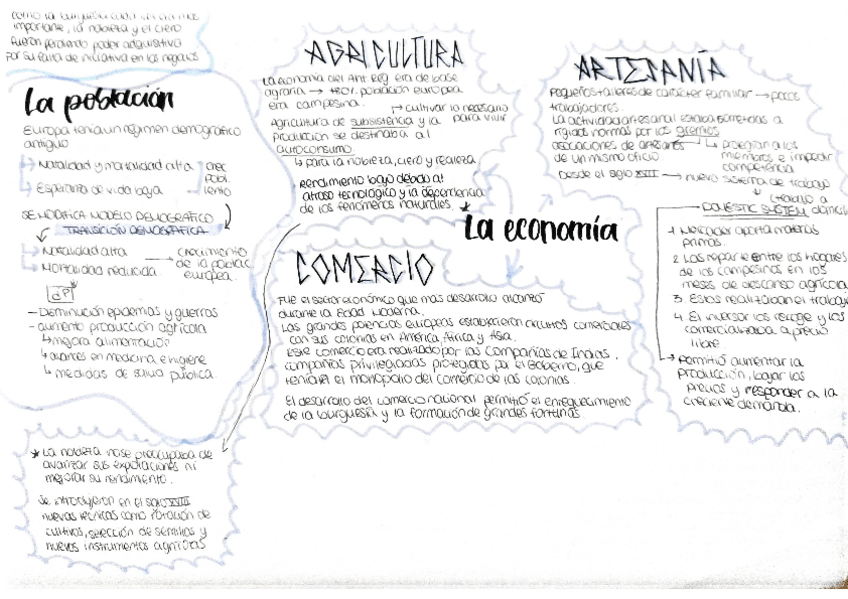 como la burguesía cada vez era más
importante, la nobleza y el clero
fueron perdiendo poder adquisitivo
por su falta de iniciativa en los negocios
La población
Europa tenía un régimen demográfico
antiguo
Natalidad y mortalidad alta
Esperanza de vida baja
crec
pobl.
lento
SE MODIFICA MODELO DEMOGRÁFICO
TRANSICIÓN DEMOGRÁFICA
Natalidad alta
Mortalidad reducida
→ crecimiento
de la poblac.
europea.
- Disminución epidemias y guerras
- aumento producción agrícola
↳ mejora alimentación
↳ avances en medicina e higiene
↳ medidas de salud pública.
* La nobleza no se preocupaba de
avanzar sus explotaciones ni
mejorar su rendimiento.
Se introdujeron en el siglo XVIII
nuevas técnicas como rotación de
cultivos, selección de semillas y
nuevos instrumentos agrícolas
AGRICULTURA
La economía del Ant. Reg era de base
agraria → población europea
era campesina.
→ cultivar lo necesario
para vivir
Agricultura de subsistencia y la
producción se destinaba al
autoconsumo.
↳ para la nobleza, clero y realeza.
Rendimiento bajo debido al
atraso tecnológico y la dependencia
de los fenómenos naturales. *
La economía
COMERCIO
Fue el sector económico que más desarrollo alcanzó
durante la Edad Moderna.
Las grandes potencias europeas establecieron circuitos comerciales
con sus colonias en América, África y Asia.
Este comercio era realizado por las Compañías de Indias,
compañías privilegiadas protegidas por el gobierno, que
tenían el monopolio del comercio de las colonias.
El desarrollo del comercio nacional permitió el enriquecimiento
de la burguesía y la formación de grandes fortunas
ARTESANÍA
Pequeños talleres de carácter familiar → pocos
trabajadores.
La actividad artesanal estaba sometida a
rígidas normas por los gremios
asociaciones de artesanos
de un mismo oficio.
↳ protegían a los
miembros e impedir
competencia
Desde el siglo XVIII → nuevo sistema de trabajo
↓ trabajo a
DOMESTIC SYSTEM
1 Mercader aporta materias
primas.
2 Las reparte entre los hogares
de los campesinos en los
meses de descanso agrícola
3 Estos realizaban el trabajo
4 El inversor los recoge y los
comercializaba a precio
libre
→ Permitió aumentar la
producción, bajar los
precios y responder a la
creciente demanda.